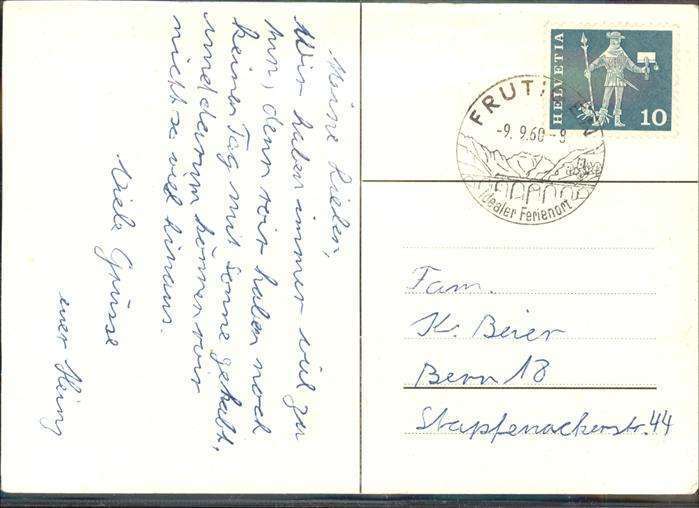 Meine Lieben,
Wir haben immer viel zu
tun, denn wir haben noch
keinen Tag mit Sonne gehabt,
und darum können wir
nicht so viel hinaus.
Viele Grüsse
euer Heinz
HELVETIA
10
FRUTIGEN
-9. 9.60-9
Idealer Ferienort
Fam.
K. Beier
Bern 18
Stapfenackerstr. 44